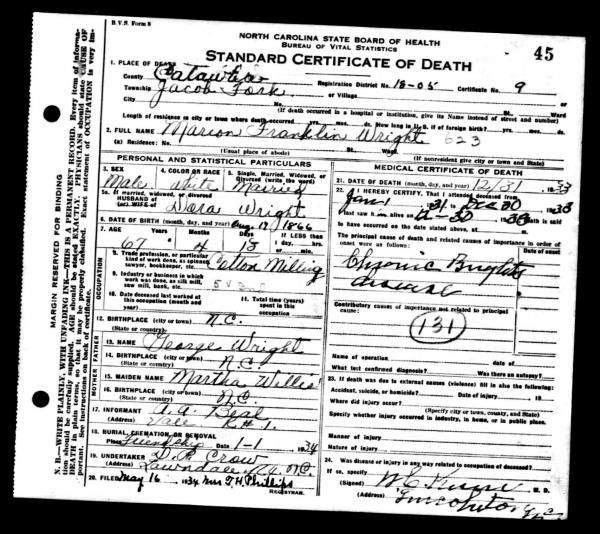 B.V.S. Form 8
NORTH CAROLINA STATE BOARD OF HEALTH
BUREAU OF VITAL STATISTICS
STANDARD CERTIFICATE OF DEATH
45
1. PLACE OF DEATH
County Catawba Registration District No. 18-05 Certificate No. 9
Township Jacob Fork or Village
City No. St. Ward
(If death occurred in a hospital or institution, give its Name instead of street and number)
Length of residence in city or town where death occurred yrs. mos. ds. How long in U. S. if of foreign birth? yrs. mos. ds.
2. FULL NAME Marion Franklin Wright 623
(a) Residence: No. St., Ward.
(Usual place of abode) (If nonresident give city or town and State)
PERSONAL AND STATISTICAL PARTICULARS
3. SEX 4. COLOR OR RACE 5. Single, Married, Widowed, or Divorced (write the word)
Male White Married
5a. If married, widowed, or divorced
HUSBAND of
(or) WIFE of Dora Wright
6. DATE OF BIRTH (month, day, and year) Aug 17 1866
7. AGE Years Months Days If LESS than 1 day, hrs. or min.
67 4 13
8. Trade, profession, or particular kind of work done, as spinner, sawyer, bookkeeper, etc. Cotton Milling
9. Industry or business in which work was done, as silk mill, saw mill, bank, etc.
10. Date deceased last worked at this occupation (month and year)
11. Total time (years) spent in this occupation
OCCUPATION
12. BIRTHPLACE (city or town) N.C.
(State or country)
FATHER
13. NAME George Wright
14. BIRTHPLACE (city or town) N.C.
(State or country)
MOTHER
15. MAIDEN NAME Martha Willis
16. BIRTHPLACE (city or town) N.C.
(State or country)
17. INFORMANT A. A. Beal
(Address) Vale R#1.
18. BURIAL, CREMATION, OR REMOVAL
Place Friendship 1-1 1934
19. UNDERTAKER D. A. Crow
(Address) Lawndale N.C.
20. FILED May 16 1934 Mrs T. H. Phillips
REGISTRAR.
MEDICAL CERTIFICATE OF DEATH
21. DATE OF DEATH (month, day, and year) 12/31 1933
22. I HEREBY CERTIFY, That I attended deceased from
Jan 1 31 to Dec 30 1933
I last saw him alive on 12-30 1933 Death is said
to have occurred on the date stated above, at m.
The principal cause of death and related causes of importance in order of onset were as follows: Date of onset
Chronic Brights
disease
Contributory causes of importance not related to principal cause:
131
Name of operation Date of
What test confirmed diagnosis? Was there an autopsy?
23. If death was due to external causes (violence) fill in also the following:
Accident, suicide, or homicide? Date of injury 19
Where did injury occur?
(Specify city or town, county, and State)
Specify whether injury occurred in industry, in home, or in public place.
Manner of injury
Nature of injury
24. Was disease or injury in any way related to occupation of deceased?
If so, specify
(Signed) M. D.
(Address) Lincolnton N.C.
MARGIN RESERVED FOR BINDING
N. B.—WRITE PLAINLY, WITH UNFADING INK—THIS IS A PERMANENT RECORD. Every item of information should be carefully supplied. AGE should be stated EXACTLY. PHYSICIANS should state CAUSE OF DEATH in plain terms, so that it may be properly classified. Exact statement of OCCUPATION is very important. See instructions on back of certificate.